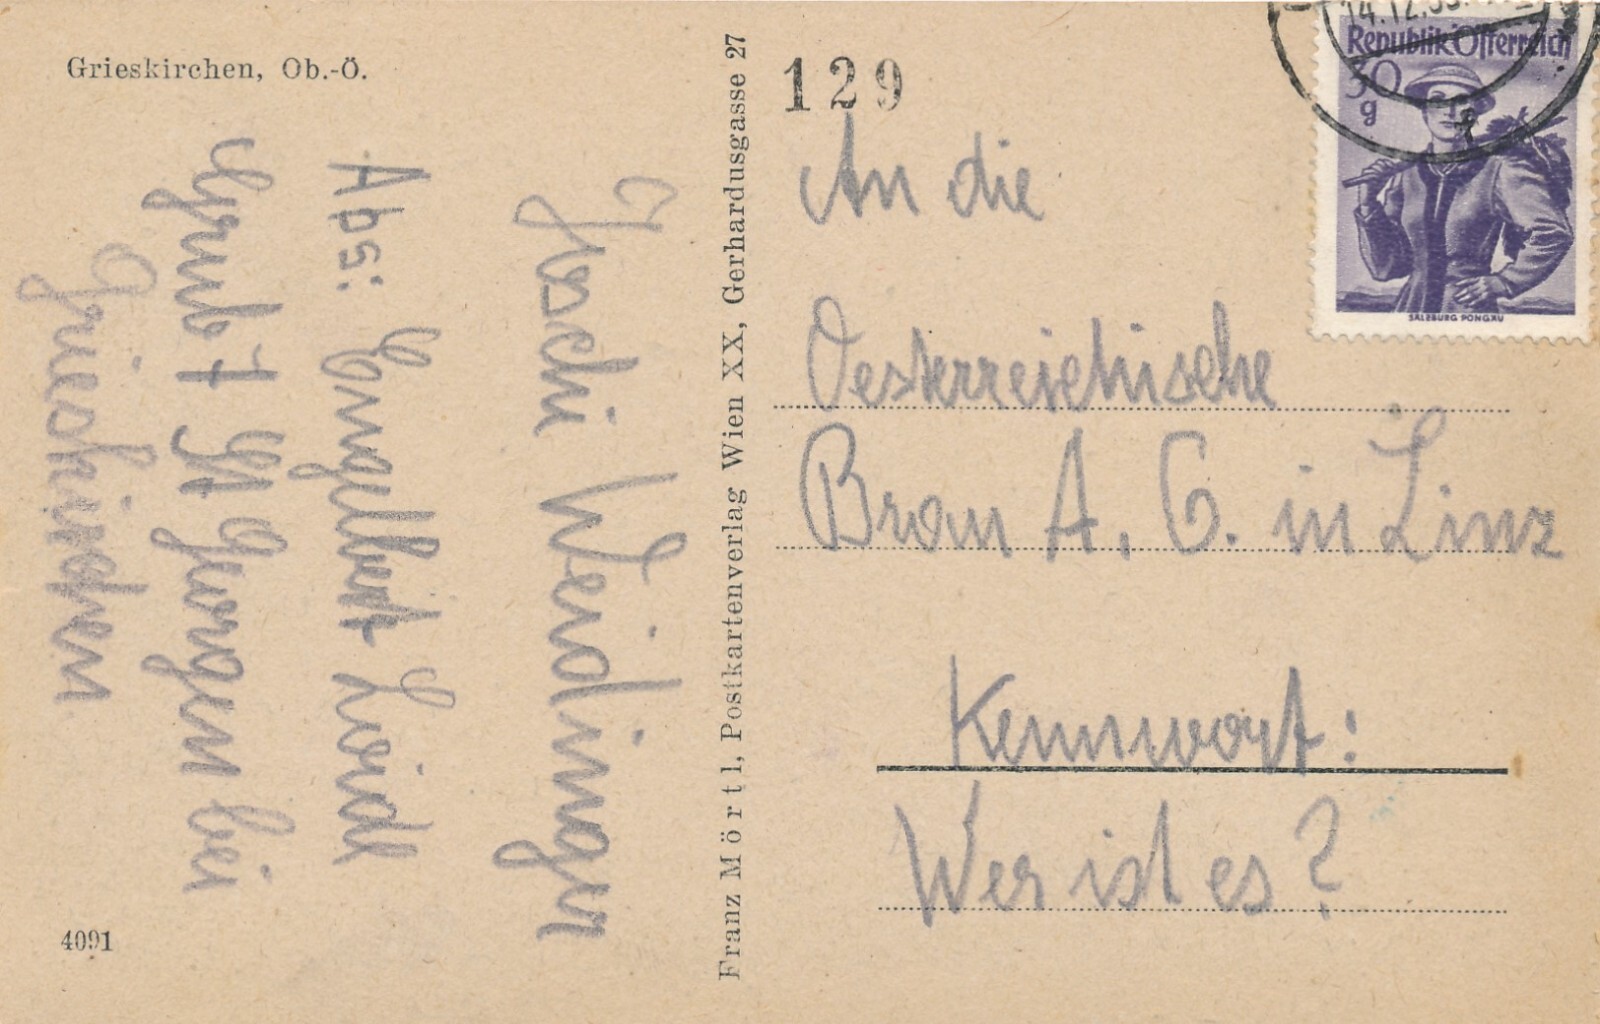 Grieskirchen, Ob.-Ö.
Joschi Weidinger
Abs: Engelbert Loidl
Grub 7 St Georgen bei
Grieskirchen
4091
Franz Mörtl, Postkartenverlag Wien XX, Gerhardusgasse 27
129
An die
Oesterreichische
Brau A. G. in Linz
Kennwort:
Wer ist es?
Republik Österreich
30
g
SALZBURG PONGAU